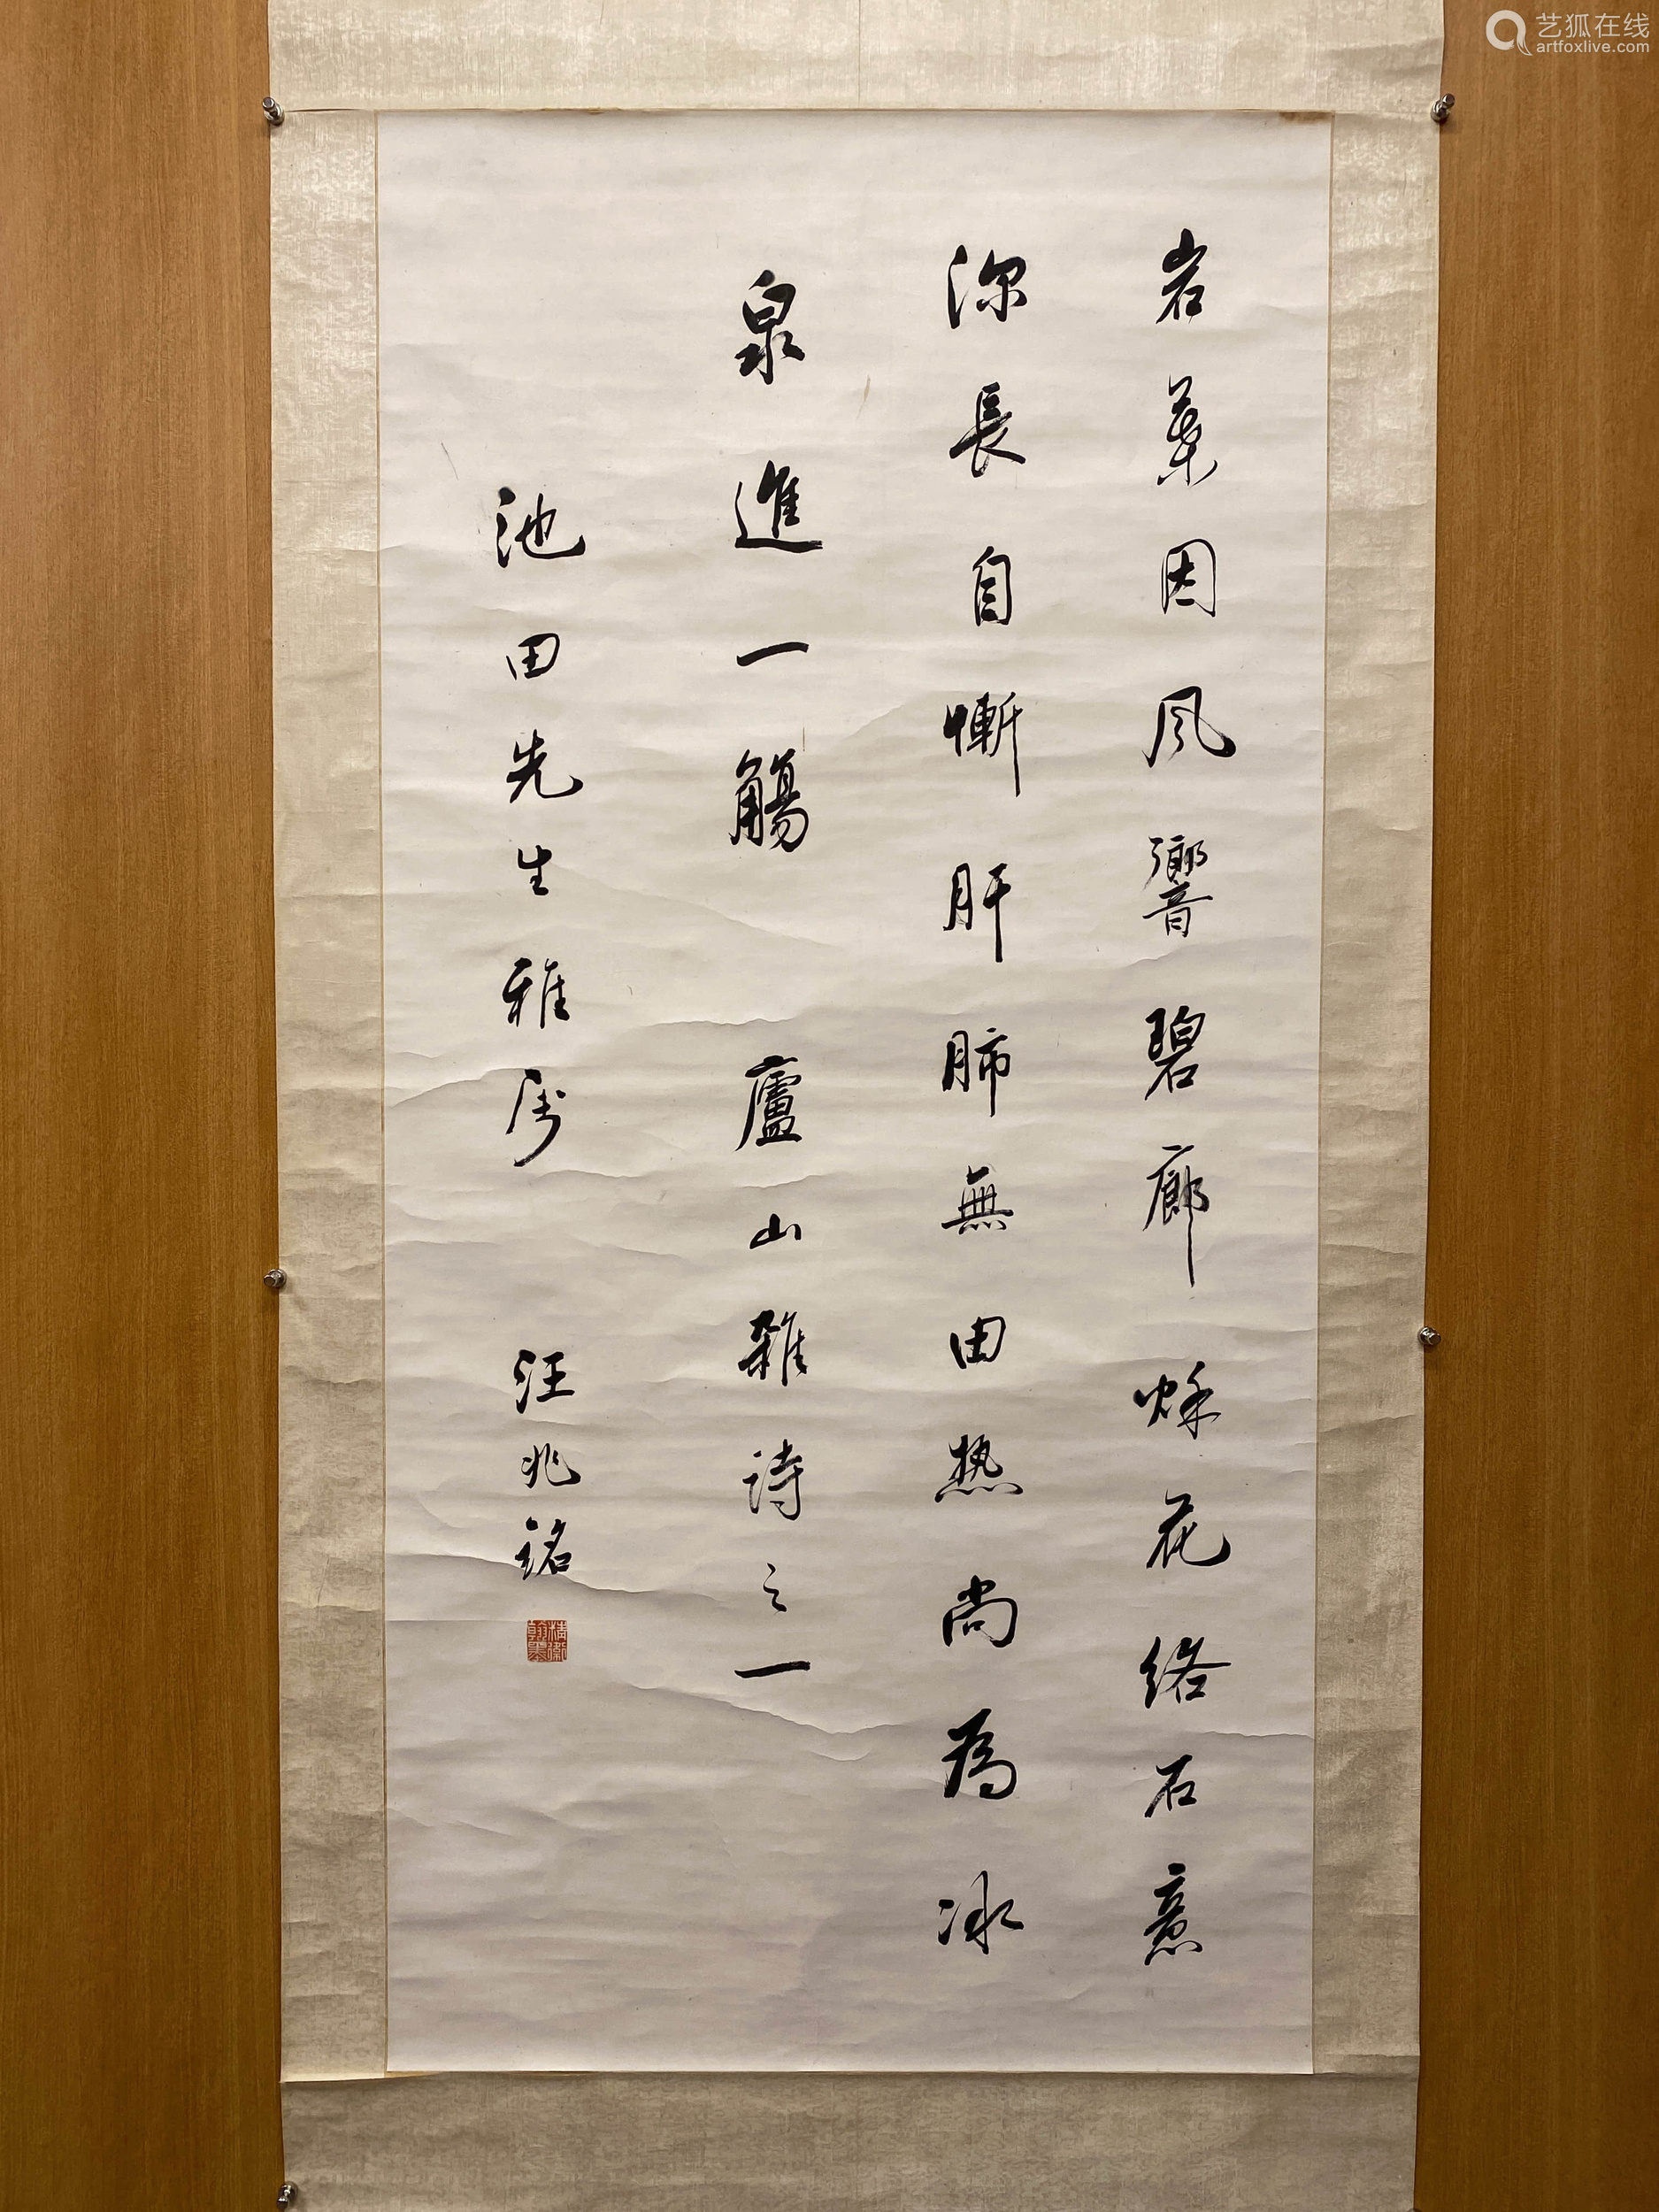 岩葉因风響碧廊烁花络石意
深長自慚肝肺無由热尚為冰
泉進一觴 廬山雜诗之一
池田先生雅属 汪兆铭
精衛翰墨
艺狐在线
artfoxlive.com